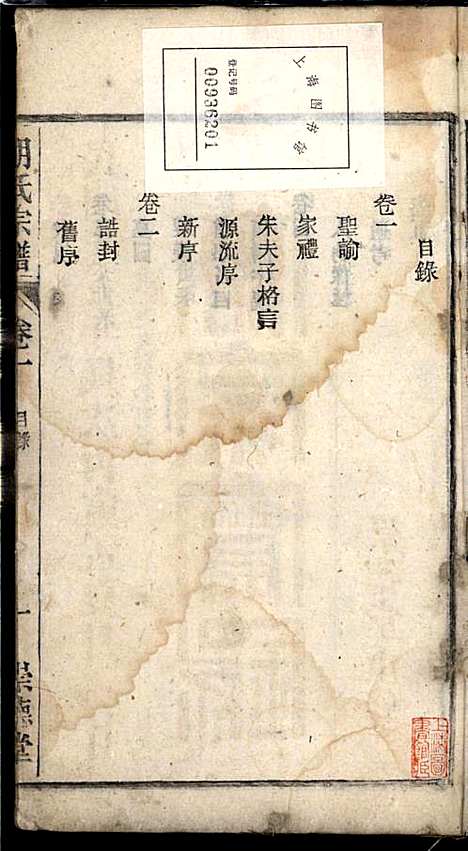 目錄
卷一
聖諭
家禮
朱夫子格言
源流序
新序
卷二
誥封
舊序
胡氏宗譜
卷一
目錄
一
崇德堂
登记号码
00936201